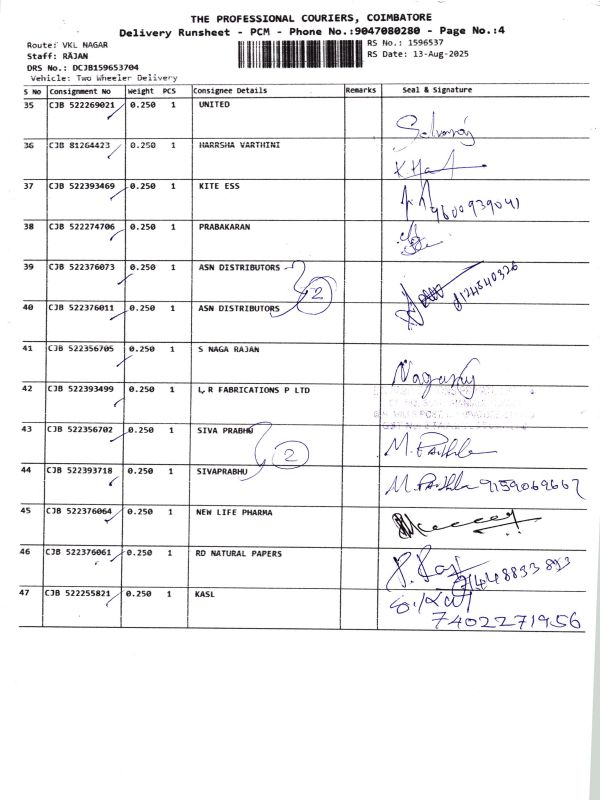 THE PROFESSIONAL COURIERS, COIMBATORE
Delivery Runsheet - PCM - Phone No.:9047080280 - Page No.:4
Route: VKL NAGAR
RS No.: 1596537
Staff: RAJAN
RS Date: 13-Aug-2025
DRS No.: DCJB159653704
Vehicle: Two Wheeler Delivery
S No Consignment No Weight PCS Consignee Details Remarks Seal & Signature
35 CJB 522269021 0.250 1 UNITED
Selvaraj
36 CJB 81264423 0.250 1 HARRSHA VARTHINI
37 CJB 522393469 0.250 1 KITE ESS
9600939041
38 CJB 522274706 0.250 1 PRABAKARAN
39 CJB 522376073 0.250 1 ASN DISTRIBUTORS
2
8124540326
40 CJB 522376011 0.250 1 ASN DISTRIBUTORS
41 CJB 522356705 0.250 1 S NAGA RAJAN
Nagaraj
42 CJB 522393499 0.250 1 L,R FABRICATIONS P LTD
43 CJB 522356702 0.250 1 SIVA PRABHU
2
44 CJB 522393718 0.250 1 SIVAPRABHU
9159069667
45 CJB 522376064 0.250 1 NEW LIFE PHARMA
46 CJB 522376061 0.250 1 RD NATURAL PAPERS
9448833893
47 CJB 522255821 0.250 1 KASL
7402271956